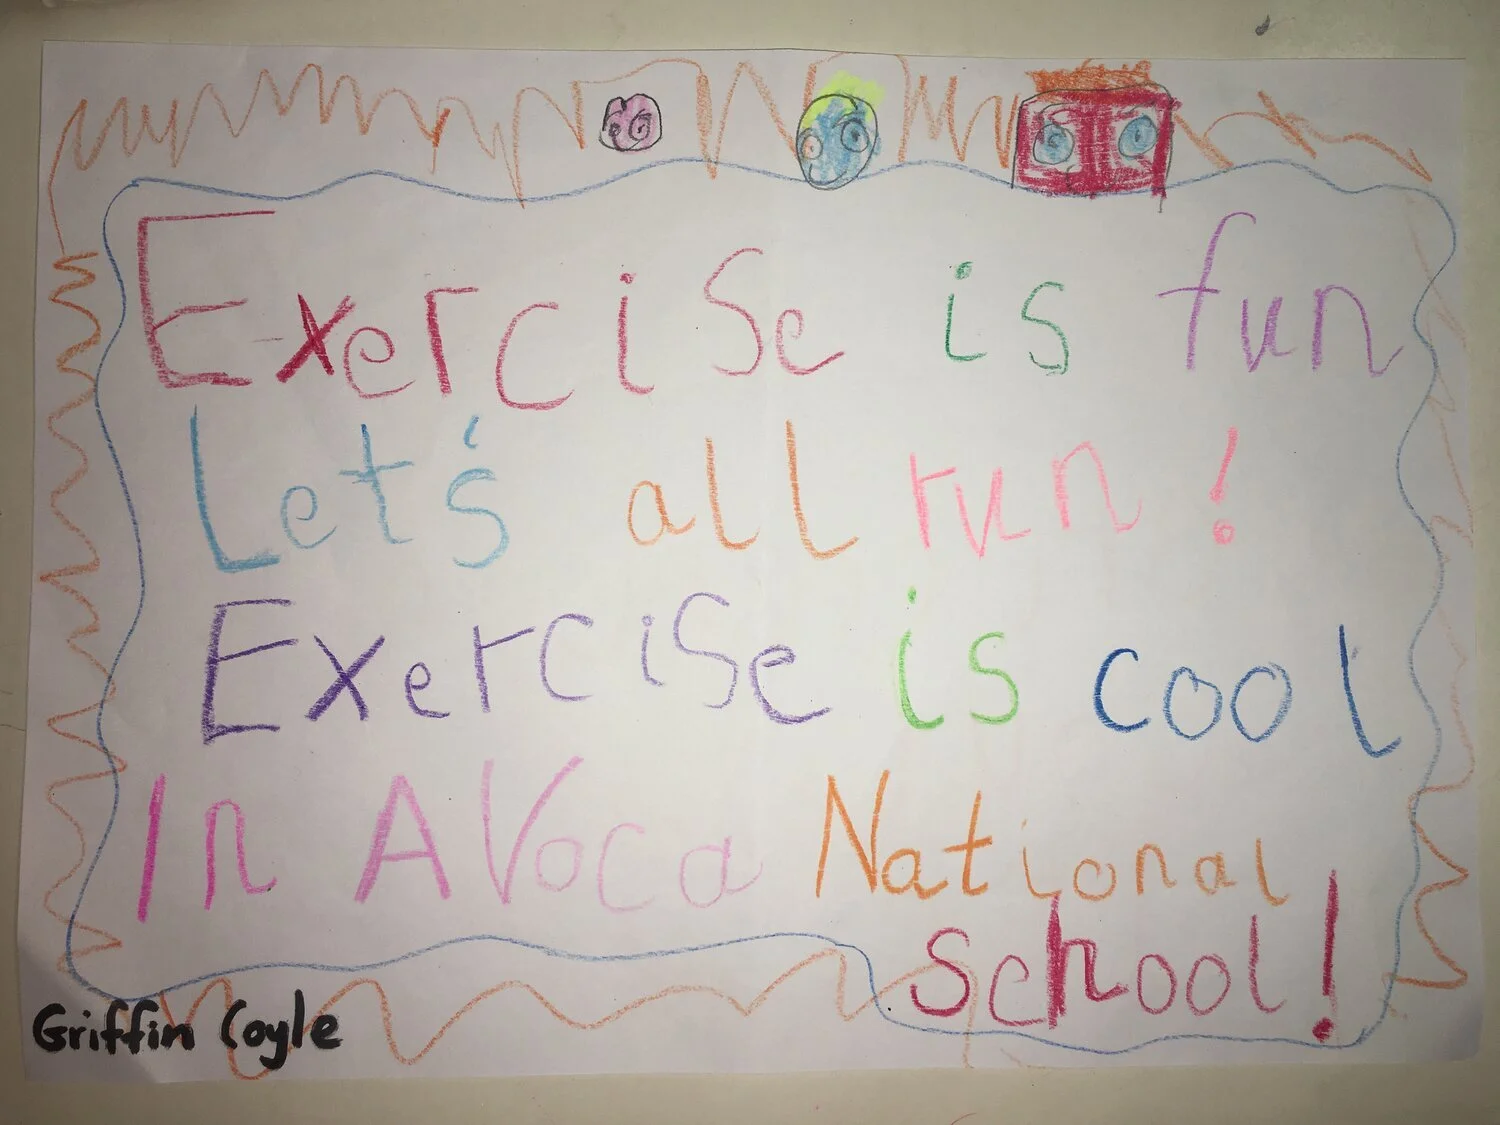 Exercise is fun
Let's all run!
Exercise is cool
In AVoca National
School!
Griffin Coyle